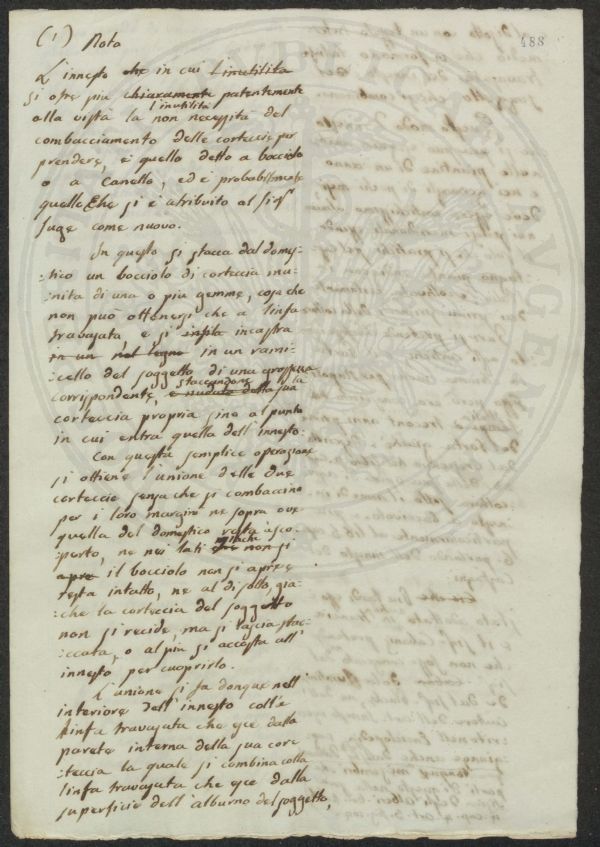 (1) Nota
488
L'innesto che in cui l'inutilità
si ofre più chiaramente patentemente
l'inutilità
alla vista la non necessità del
combacciamento delle corteccie per
prendere, è quello detto a bocciolo
o a canello, ed è probabilmente
quello che si è atribuito al sigr
come nuovo.
In questo si stacca dal domes-
:tico un bocciolo di corteccia mu-
:nita di una o più gemme, cosa che
non può ottenersi che a linfa
travasata e si infila incastra
in un nel legno in un rami-
:cello del soggetto di una grossezza
staccandone la
corrispondente, e nudato della sua
corteccia propria sino al punto
in cui entra quella dell'innesto.
Con questa semplice operazione
si ottiene l'unione delle due
corteccie senza che si combaccino
per i loro margini ne sopra ove
quella del domestico resta asco-
:perto, ne nei lati che non si
apre il bocciolo non si aprì e
resta intatto, ne al di sotto, gia-
:che la corteccia del soggetto
non si recide, ma si lascia stac-
:cata, o al più si accosta all'
innesto per cuoprirlo.
L'unione si fa donque nell'
interiore dell'innesto coll'e
linfa travasata che esce dalla
parete interna della sua cor-
:teccia la quale si combina colla
linfa travasata che esce dalla
superficie dell'alburno del soggetto,